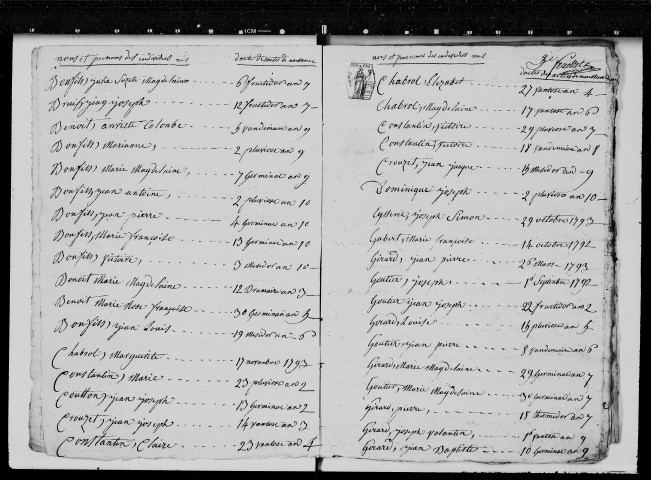 noms et prenoms des individus nés dates des actes de naissance
Bonfils, julie Sixte Magdelaine 6 fructidor an 7
joseph 12 fructidor an 7
Benoit, anriette Colombe 5 vendemiaire an 9
Bonfils, Marianne, 2 pluviose an 9
Bonfils, Marie Magdelaine, 7 Germinal an 9
Bonfils, jean antoine, 2 pluviose an 10
Bonfils, jean pierre 4 Germinal an 10
Bonfils, Marie françoise 13 Germinal an 10
Bonfils, Victoire, 3 Messidor an 10
Benoit Marie Magdelaine 12 Brumaire an 3
Benoit Marie Rose françoise 30 Germinal an 5
Bonfils, jean Louis 19 Messidor an 6
Chabrol, Marguerite 17 novembre 1793
Constantin, Marie 23 pluviose an 2
Coutton, jean joseph 13 Germinal an 2
Crouzet, jean joseph 14 ventose an 3
Constantin, Claire 23 ventose an 4
noms et prenoms des individus nés dates des actes de naissance
Chabrol, Elizabet 27 ventose an 4
Chabrol, Magdelaine 17 ventose an 6
Constantin, Victoire 29 pluviose an 7
Constantin, Victoire 18 vendemiaire an 8
Crouzet, jean jacque 15 Messidor an 9
Dominique joseph 2 pluviose an 10
joseph Simon 29 octobre 1793
Gabert, Marie françoise 14 octobre 1792
Girard, jean pierre 26 Mars 1793
Goutier, joseph 1er Septembre 1792
Goutier jean joseph 22 fructidor an 2
Girard, Louise 15 pluviose an 5
Goutier, jean pierre 8 vendemiaire an 6
Girard, Marie Magdelaine 29 Germinal an 7
Goutier, Marie Magdelaine 30 Germinal an 7
Girard, pierre, 18 thermidor an 7
Girard, joseph valantin, 1er ventose an 9
Girard, jean Baptiste 10 Germinal an 9